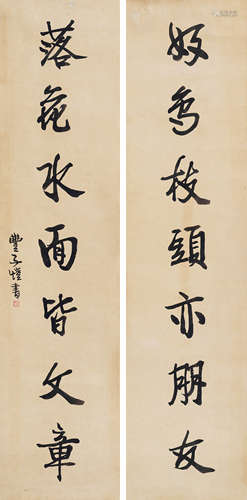 好鸟枝頭亦朋友
落花水面皆文章
豐子愷書